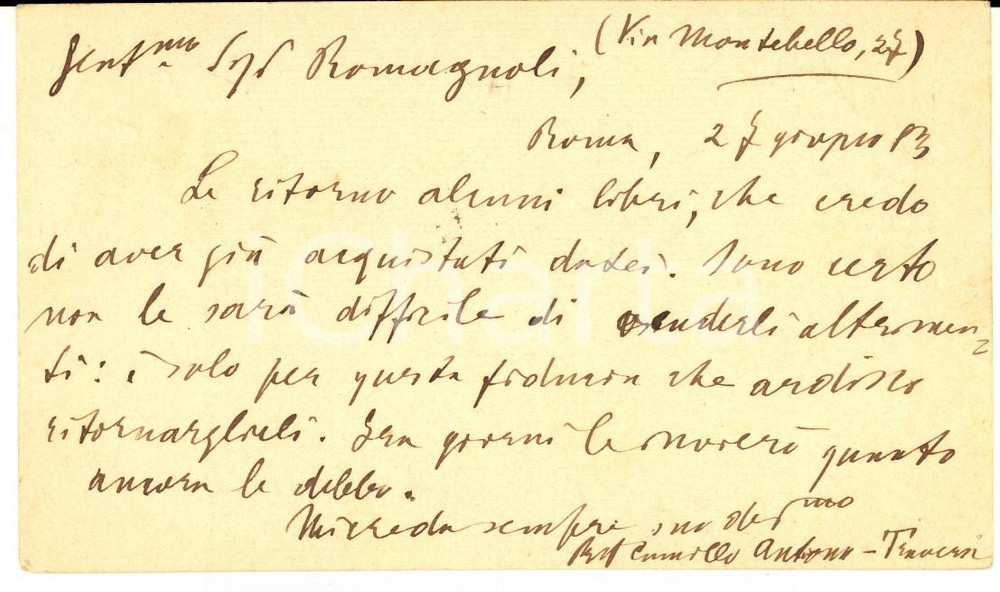 Gent.mo Sigr Romagnoli, (Via Montebello, 27)
Roma, 27 giugno 83
Le ritorno alcuni libri, che credo
di aver già acquistati da Lei. Sono certo
non le sarà difficile di venderli altrimen-
ti: è solo per questa fiducia che ardisco
ritornarglieli. Fra giorni le invierò quanto
ancora le debbo.
Mi creda sempre suo dev.mo
Prof Camillo Antona-Traversi
iCharta